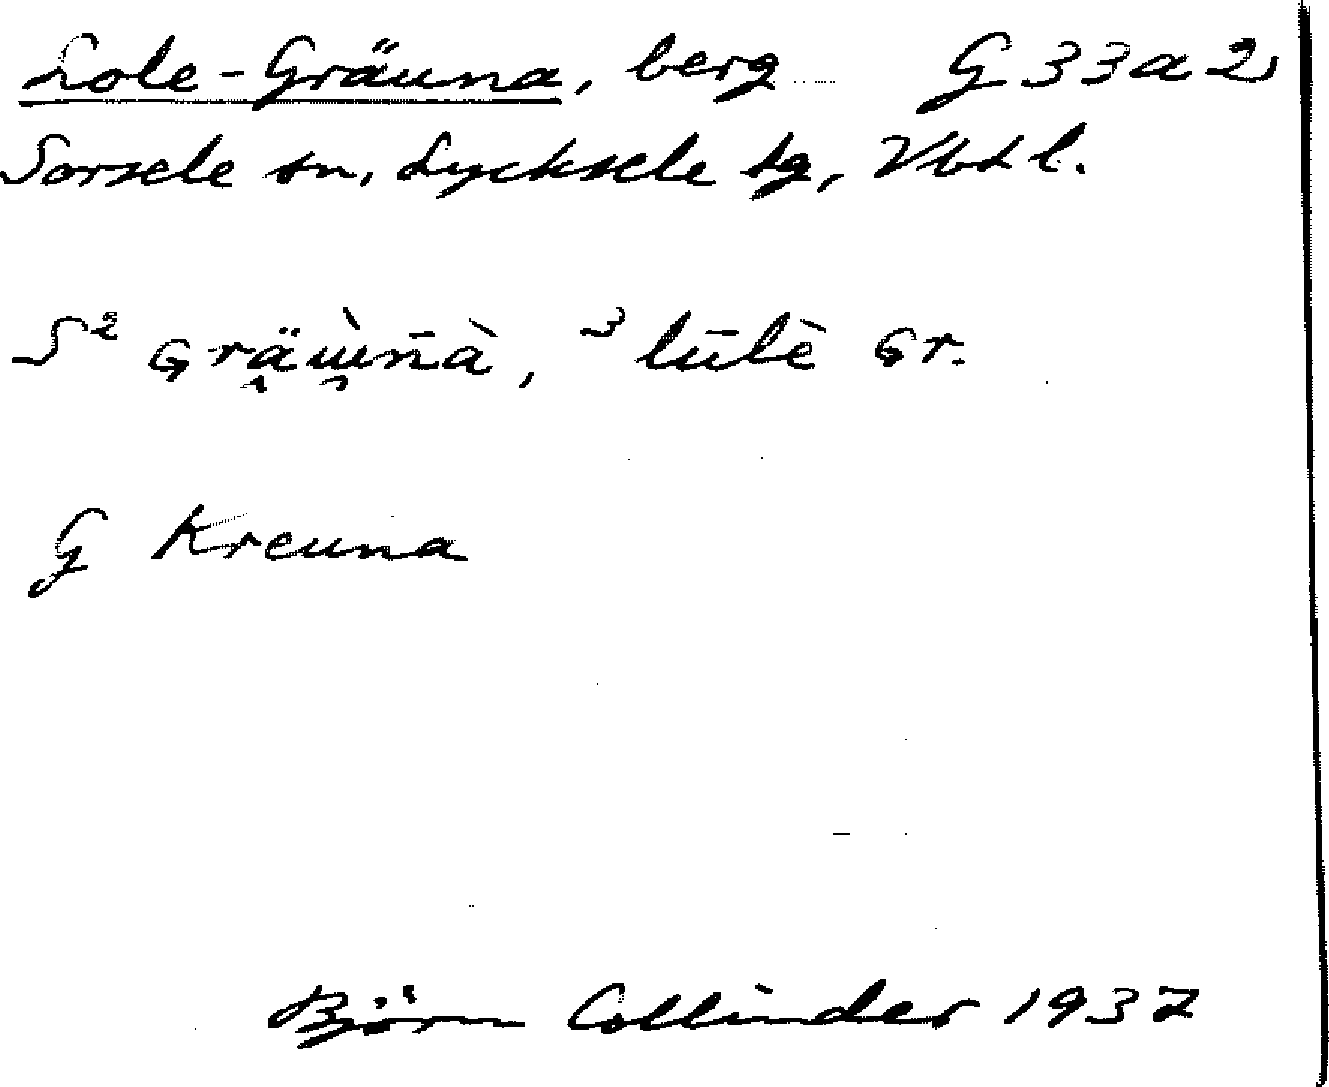 Lole-Gräuna, berg G 33a2
Sorsele sn, Lycksele tg, Vbtl.
S² Gräu̇n̄à, ³ lūlè Gr.
G Kreuna
Björn Collinder 1937